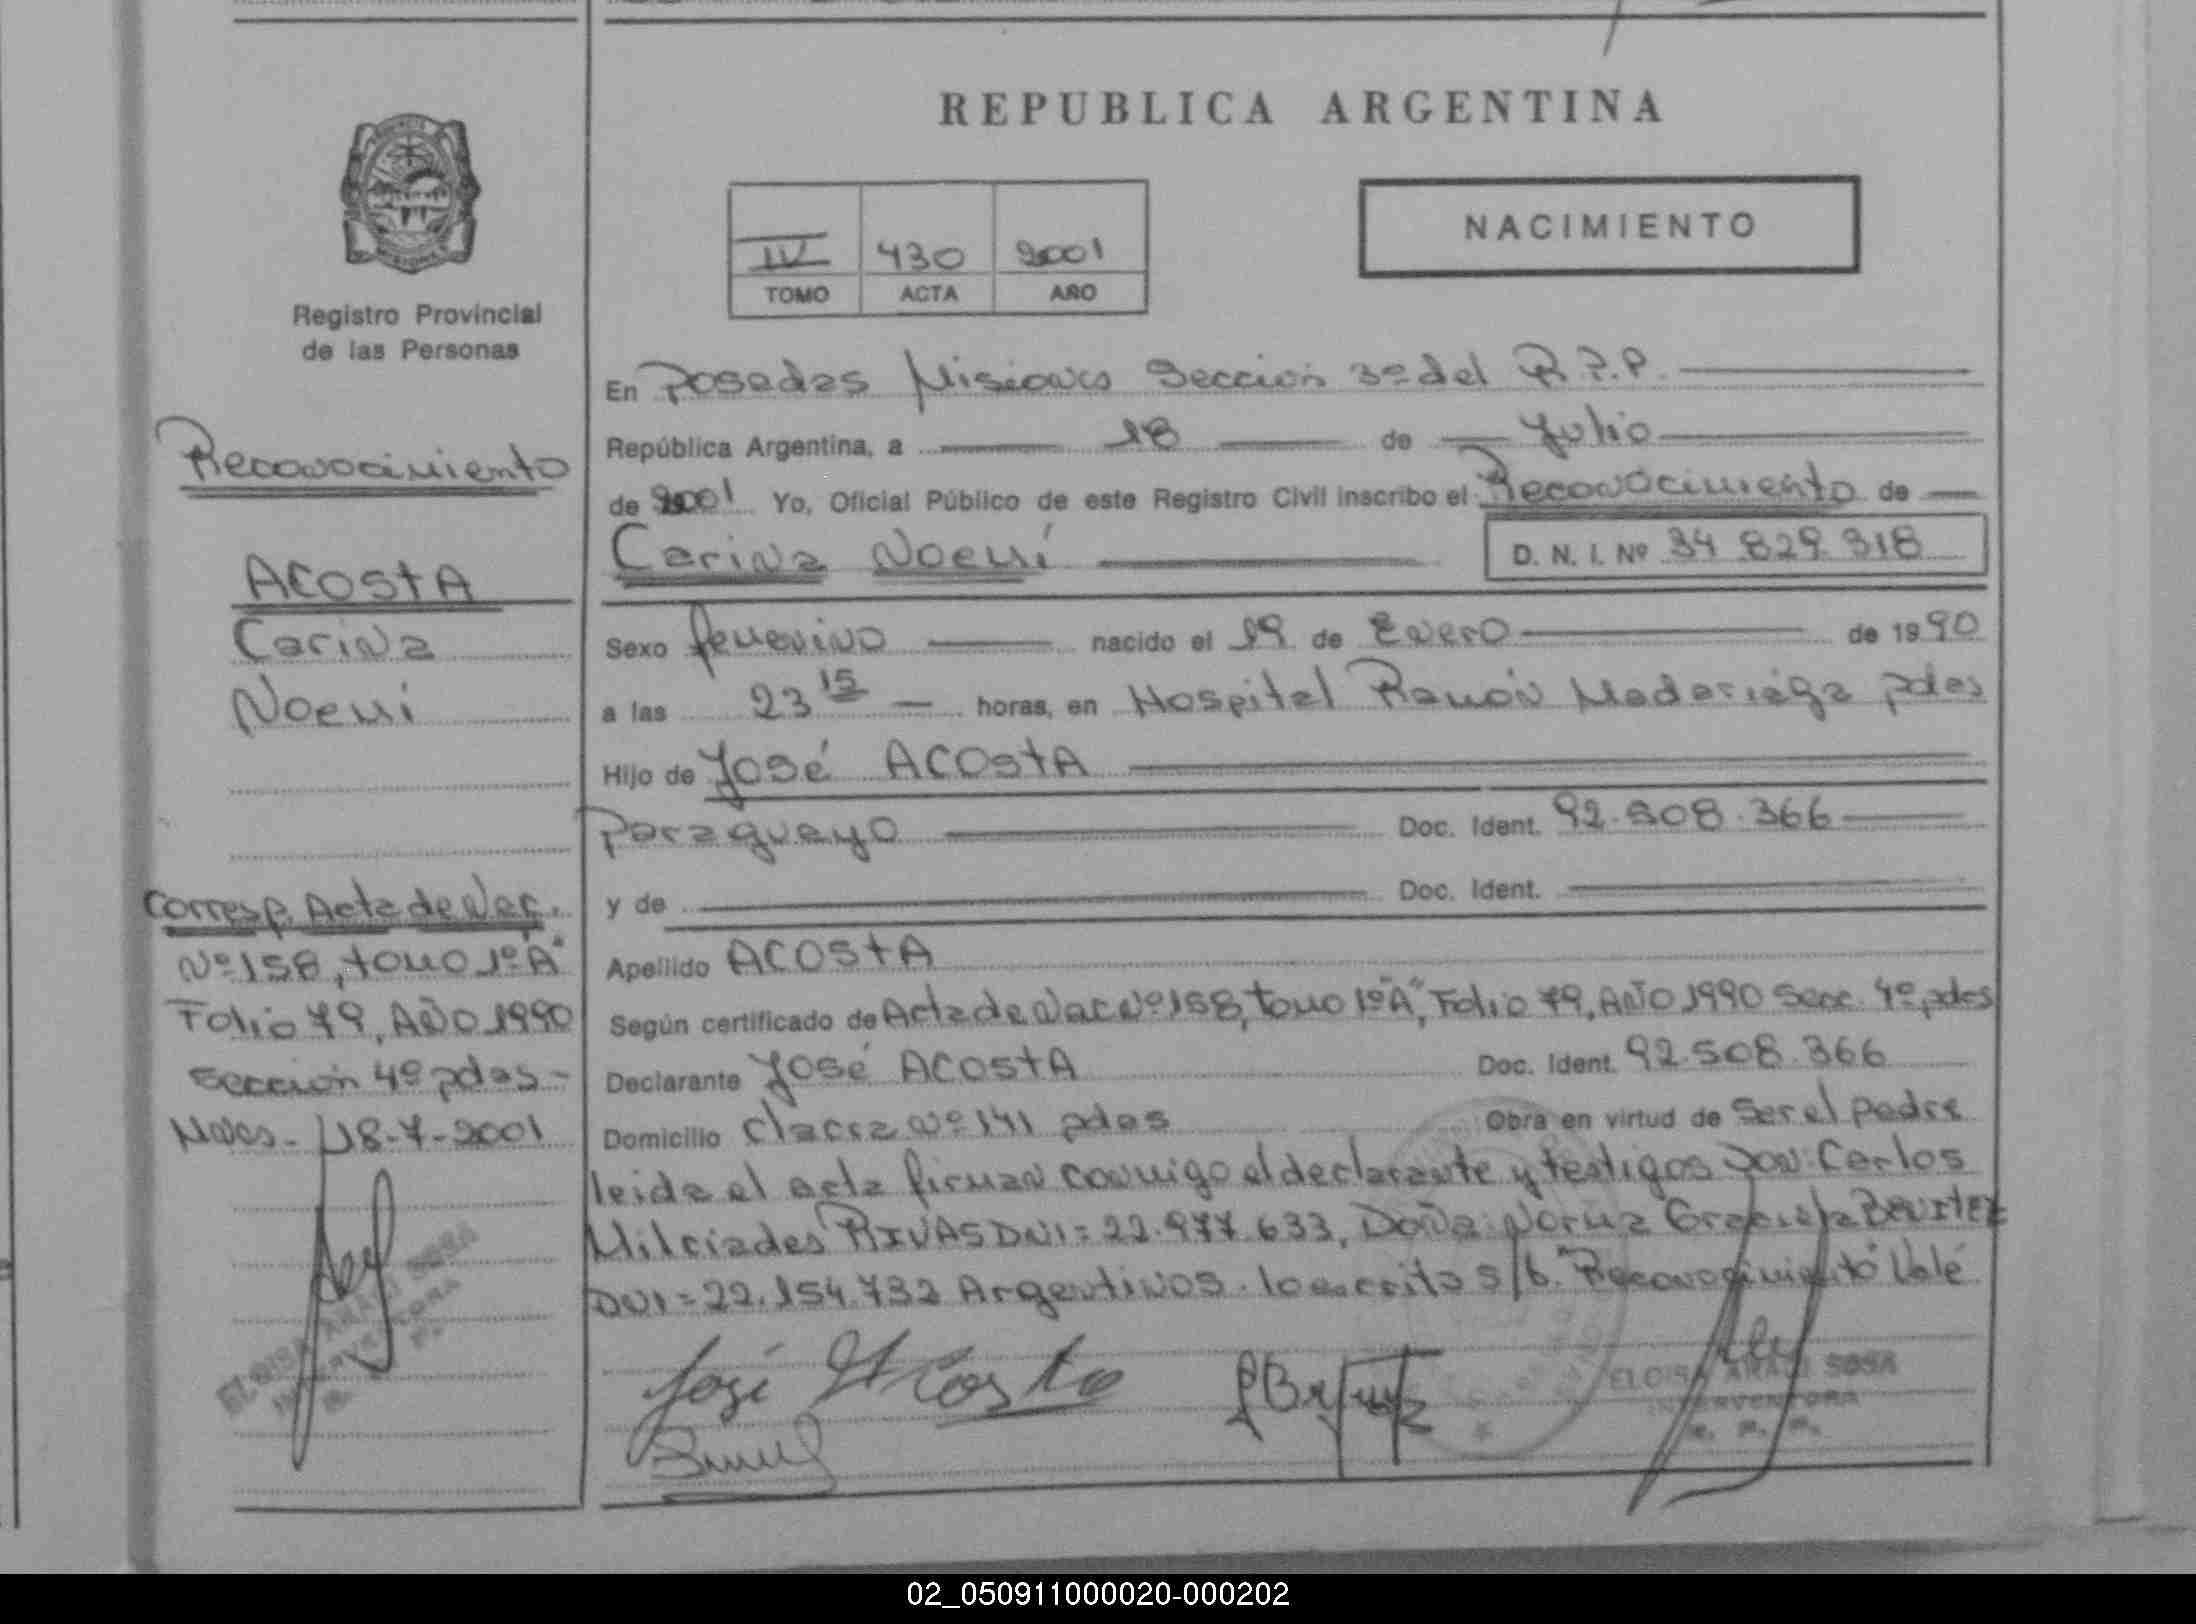 REPUBLICA ARGENTINA
NACIMIENTO
IV 430 2001
TOMO ACTA AÑO
Registro Provincial
de las Personas
Reconocimiento
ACOSTA
Carina
Noemi
Corresp. Acta de Nac.
Nº 158, tomo 1º "A"
Folio 79, AÑO 1990
Sección 4º pdas -
18-7-2001
ELOISA ARALI SOSA
INTERVENTORA
En Posadas Misiones Sección 3º del R.P.P.
República Argentina, a 18 de Julio
de 2001 Yo, Oficial Público de este Registro Civil inscribo el Reconocimiento de
Carina Noemí D. N. I. Nº 34 829 318
Sexo femenino nacido el 19 de Enero de 1990
a las 23 15 horas, en Hospital Ramón Madariaga pdas
Hijo de José ACOSTA
Paraguayo Doc. Ident. 92.508.366
y de Doc. Ident.
Apellido ACOSTA
Según certificado de Acta de Nac Nº 158, tomo 1º "A", Folio 79, AÑO 1990 Secc. 4º pdas
Declarante José ACOSTA Doc. Ident. 92.508.366
Domicilio Chacra Nº 141 pdas Obra en virtud de Ser el padre
leida el acta firman conmigo el declarante y testigos Don: Carlos
Milciades RIVAS DNI = 22.977.633, Doña: Norma Graciela Benitez
DNI = 22.154.732 Argentinos. lo escrito s/b. "Reconocimiento" Vale
José Acosta
ELOISA ARALI SOSA
INTERVENTORA
R. P. P.
02_050911000020-000202